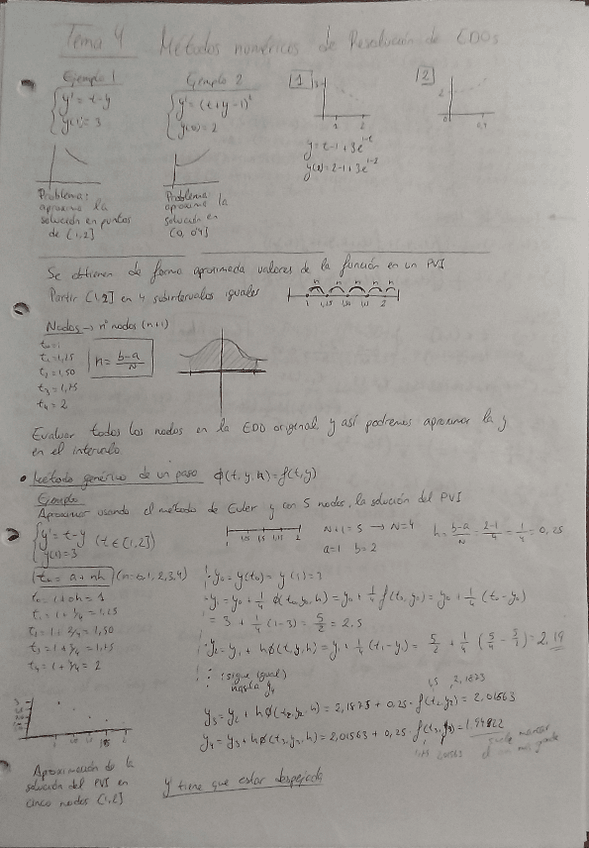 Tema 4 Métodos numéricos de Resolución de EDOs
Ejemplo 1
{ y' = t-y
y(1) = 3
Ejemplo 2
{ y' = (t+y-1)²
y(0) = 2
1
3
1 2
2
2
0 0,4
y = t-1+3e^(1-t)
y(2) = 2-1+3e^(1-2)
Problema:
aproximo la
solución en puntos
de [1,2]
Problema:
aproximo la
solución en
[0, 0,4]
Se obtienen de forma aproximada valores de la función en un PVI
Partir [1,2] en 4 subintervalos iguales
h h h h
1 1,25 1,50 1,75 2
Nodos → nº nodos (n+1)
t₀=1
t₁=1,25
t₂=1,50
t₃=1,75
t₄=2
h = (b-a)/N
Evaluar todos los nodos en la EDO original y así podremos aproximar la y
en el intervalo.
• Método genérico de un paso ϕ(t,y,h)=f(t,y)
Ejemplo
Aproximar usando el método de Euler y con 5 nodos, la solución del PVI
{ y' = t-y (t ∈ [1,2])
y(1)=3
N+1=5 → N=4
a=1 b=2
h = (b-a)/N = (2-1)/4 = 1/4 = 0,25
tₙ = a + nh (n=0,1,2,3,4)
t₀=1+0h=1
t₁=1+1/4=1,25
t₂=1+2/4=1,50
t₃=1+3/4=1,75
t₄=1+4/4=2
y₀=y(t₀)=y(1)=3
y₁=y₀+1/4 ϕ(t₀,y₀,h)=y₀+1/4 f(t₀,y₀)=y₀+1/4 (t₀-y₀)
= 3 + 1/4 (1-3) = 5/2 = 2,5
y₂=y₁+hϕ(t₁,y₁,h)=y₁+1/4 (t₁-y₁) = 5/2 + 1/4 (5/4 - 5/2) = 2,19
(sigue igual)
hasta y₄
1,5 2,1875
y₃=y₂+hϕ(t₂,y₂,h)=2,1875+0,25·f(t₂,y₂)=2,01563
y₄=y₃+hϕ(t₃,y₃,h)=2,01563+0,25·f(t₃,y₃)=1,94922
1,75 2,01563
Aproximación de la
solución del PVI en
cinco nodos [1,2]
y' tiene que estar despejada